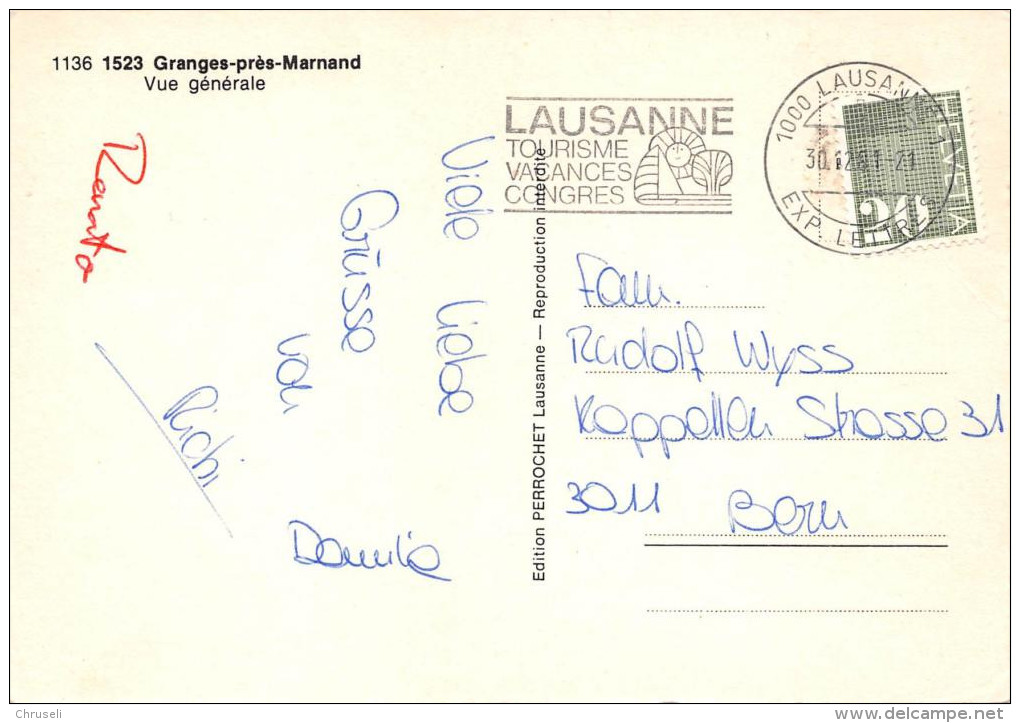 1136 1523 Granges-près-Marnand
Vue générale
LAUSANNE
TOURISME
VACANCES
CONGRES
1000 LAUSANNE
EXP. LETTRES
HELVETIA
20
Viele liebe
Grüsse
von
Richi
Danila
Renato
Edition PERROCHET Lausanne — Reproduction interdite
Fam.
Rudolf Wyss
Kappellen Strasse 31
3011 Bern
Chruseli
www.delcampe.net